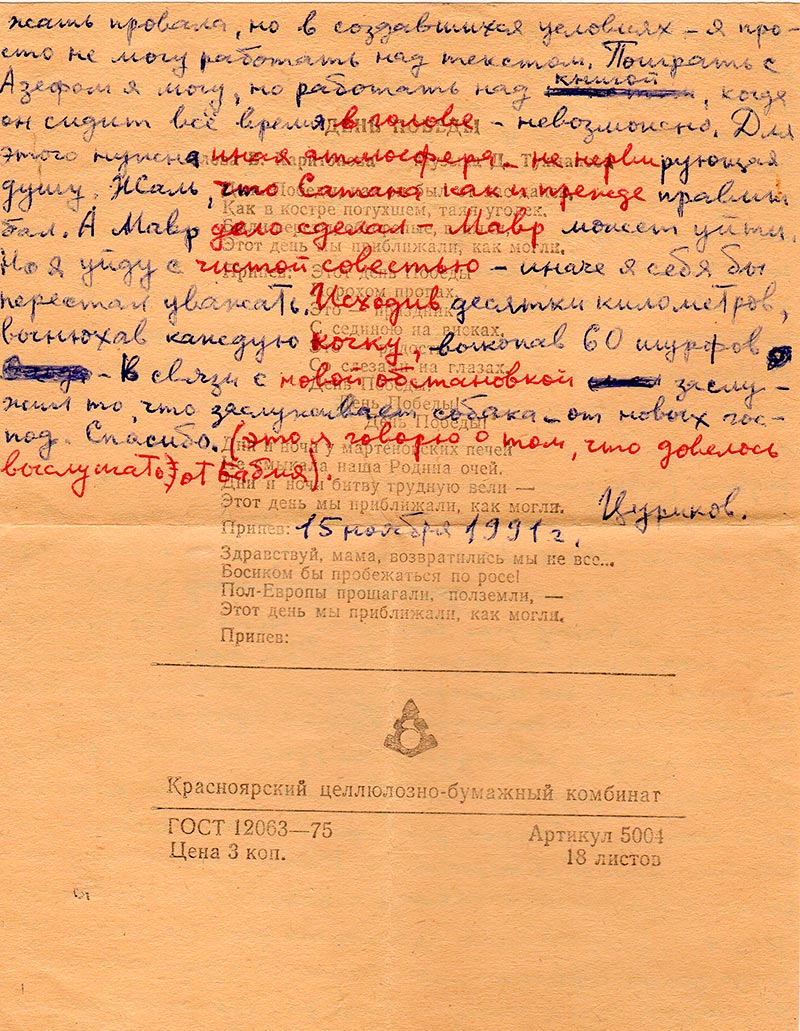 жать провала, но в создавшихся условиях – я про-
сто не могу работать над текстом. Поиграть с
Азефом я могу, но работать над книгой, когда
он сидит всё время в голове – невозможно. Для
этого нужна иная атмосфера – не нервирующая
душу. Жаль, что Сатана как и прежде правит
бал. А Мавр дело сделал – Мавр может уйти.
Но я уйду с чистой совестью – иначе я себя бы
перестал уважать. Исходив десятки километров,
вынюхав каждую кочку, выкопав 60 шурфов
– в связи с новой обстановкой заслу-
жил то, что заслуживает собака – от новых гос-
под. Спасибо. (это я говорю о том, что довелось
выслушать от Бабия).
Цуриков.
15 ноября 1991 г.
ДЕНЬ ПОБЕДЫ
Как в костре потухшем, таял уголек.
Этот день мы приближали, как могли.
Припев: Этот день Победы
Порохом пропах,
Это праздник
С сединою на висках,
Это радость
Со слезами на глазах.
День Победы!
День Победы!
День Победы!
Дни и ночи у мартеновских печей
Не смыкала наша Родина очей.
Дни и ночи битву трудную вели —
Этот день мы приближали, как могли.
Припев:
Здравствуй, мама, возвратились мы не все...
Босиком бы пробежаться по росе!
Пол-Европы прошагали, полземли, —
Этот день мы приближали, как могли.
Припев:
Красноярский целлюлозно-бумажный комбинат
ГОСТ 12063—75
Цена 3 коп.
Артикул 5004
18 листов